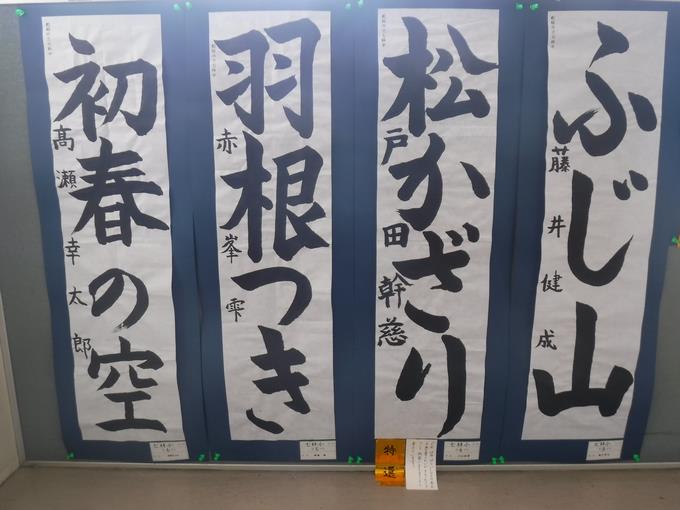 ふじ山
藤井健成
松かざり
戸田幹慈
特選
羽根つき
赤峯雫
初春の空
髙瀬幸太郎